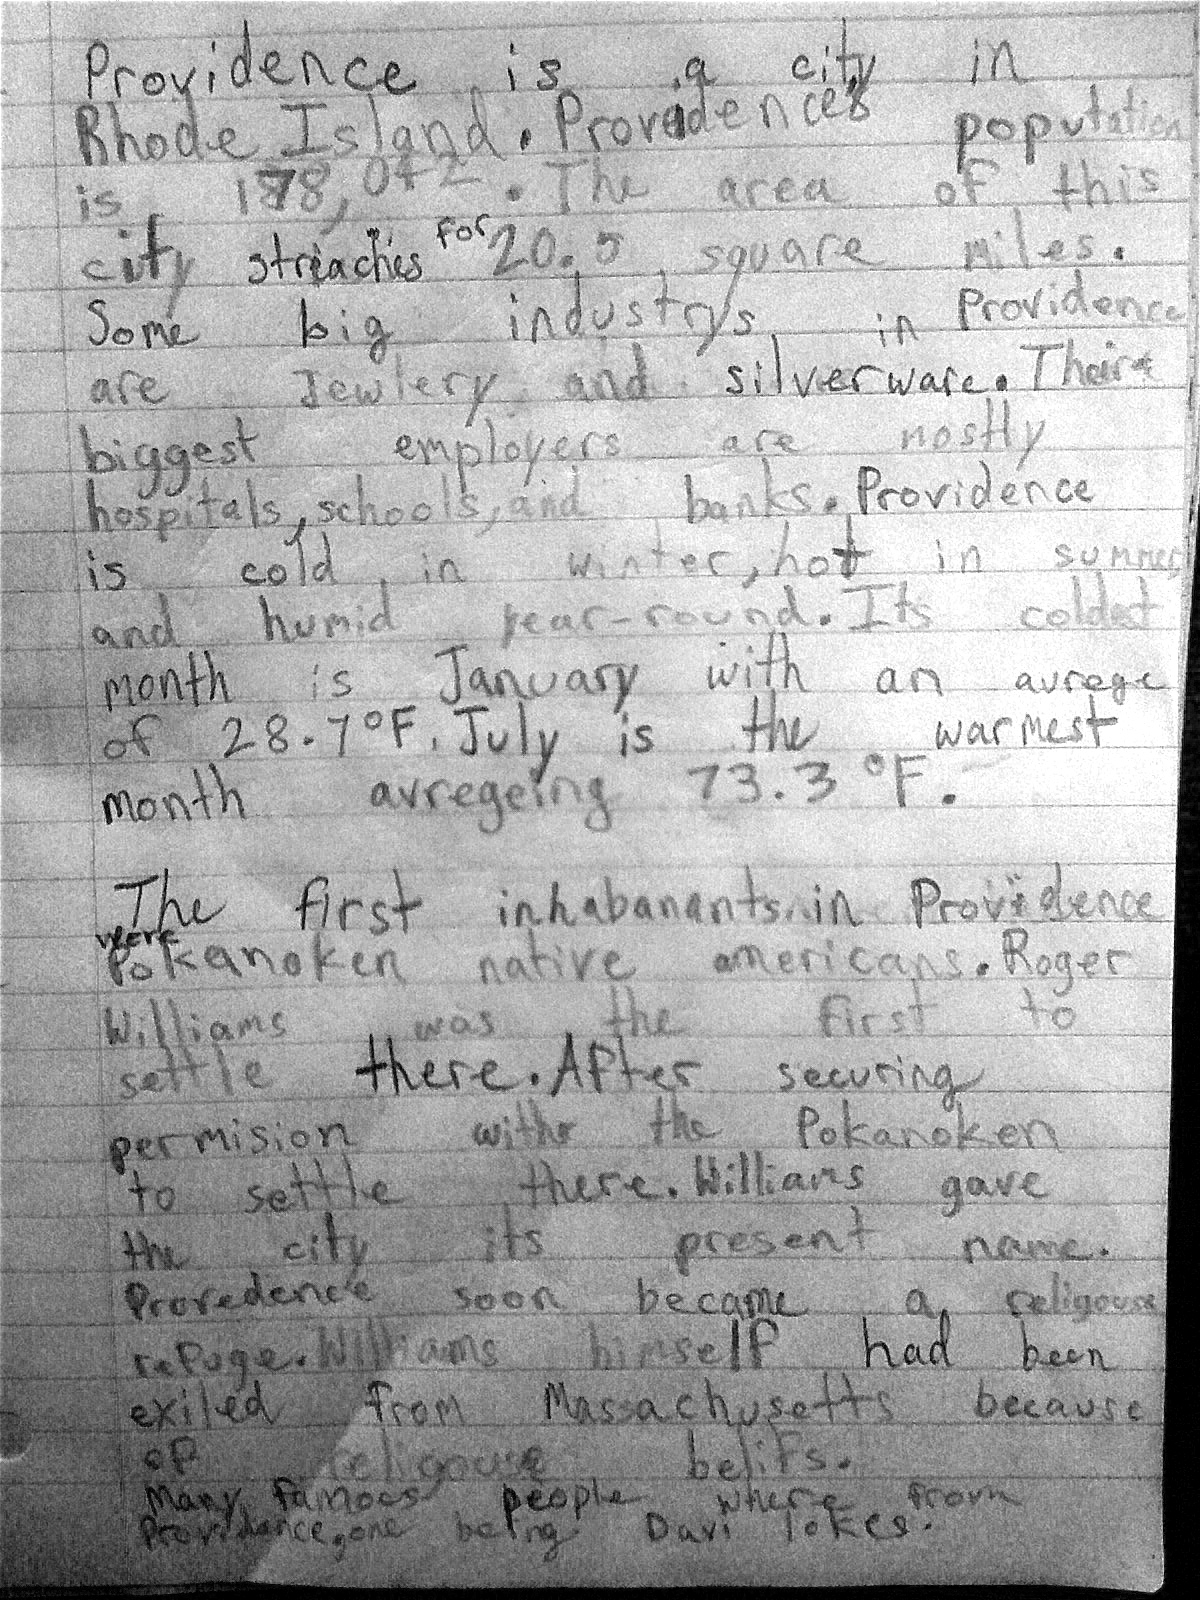 Providence is a city in
Rhode Island. Providences population
is 178,042. The area of this
city streaches for 20.5 square miles.
Some big industrys in Providence
are Jewlery and silverware. Their
biggest employers are mostly
hospitals, schools, and banks. Providence
is cold in winter, hot in summer
and humid year-round. Its coldest
month is January with an avrege
of 28.7°F. July is the warmest
month avregeing 73.3 °F.
The first inhabanants in Providence
were Pokanoken native americans. Roger
Williams was the first to
settle there. After securing
permision with the Pokanoken
to settle there. Williams gave
the city its present name.
Provedence soon became a religouse
refuge. Williams himself had been
exiled from Massachusetts because
of religouse belifs.
Many famoes people where from
Providence, one being Davi